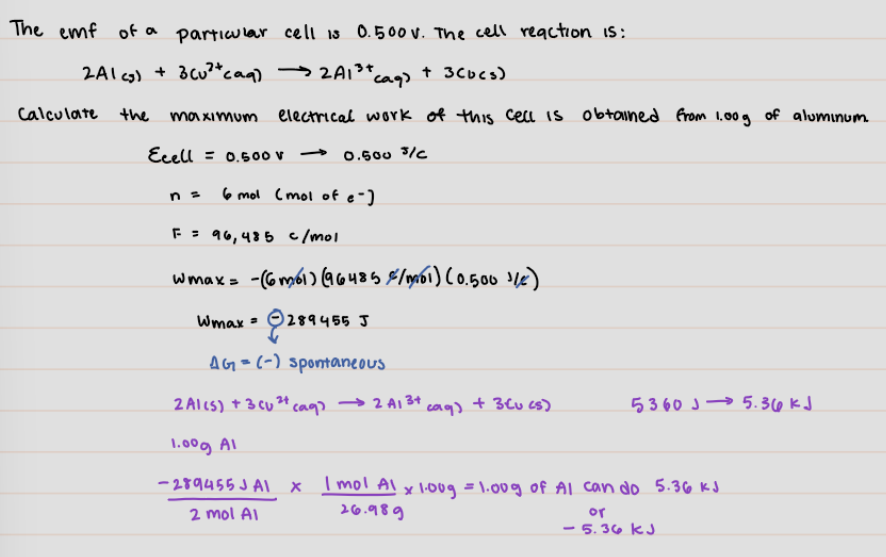 The emf of a particular cell is 0.500 V. The cell reaction is:
2Al(s) + 3Cu²⁺(aq) → 2Al³⁺(aq) + 3Cu(s)
Calculate the maximum electrical work of this cell is obtained from 1.00g of aluminum
Ecell = 0.500 V → 0.500 J/C
n = 6 mol (mol of e⁻)
F = 96,485 C/mol
Wmax = -(6 mol)(96485 C/mol)(0.500 J/C)
Wmax = -289455 J
ΔG = (-) spontaneous
2Al(s) + 3Cu²⁺(aq) → 2Al³⁺(aq) + 3Cu(s) 5360 J → 5.36 kJ
1.00g Al
-289455 J Al × 1 mol Al × 1.00g = 1.00g of Al can do 5.36 kJ
2 mol Al 26.98g or
- 5.36 kJ